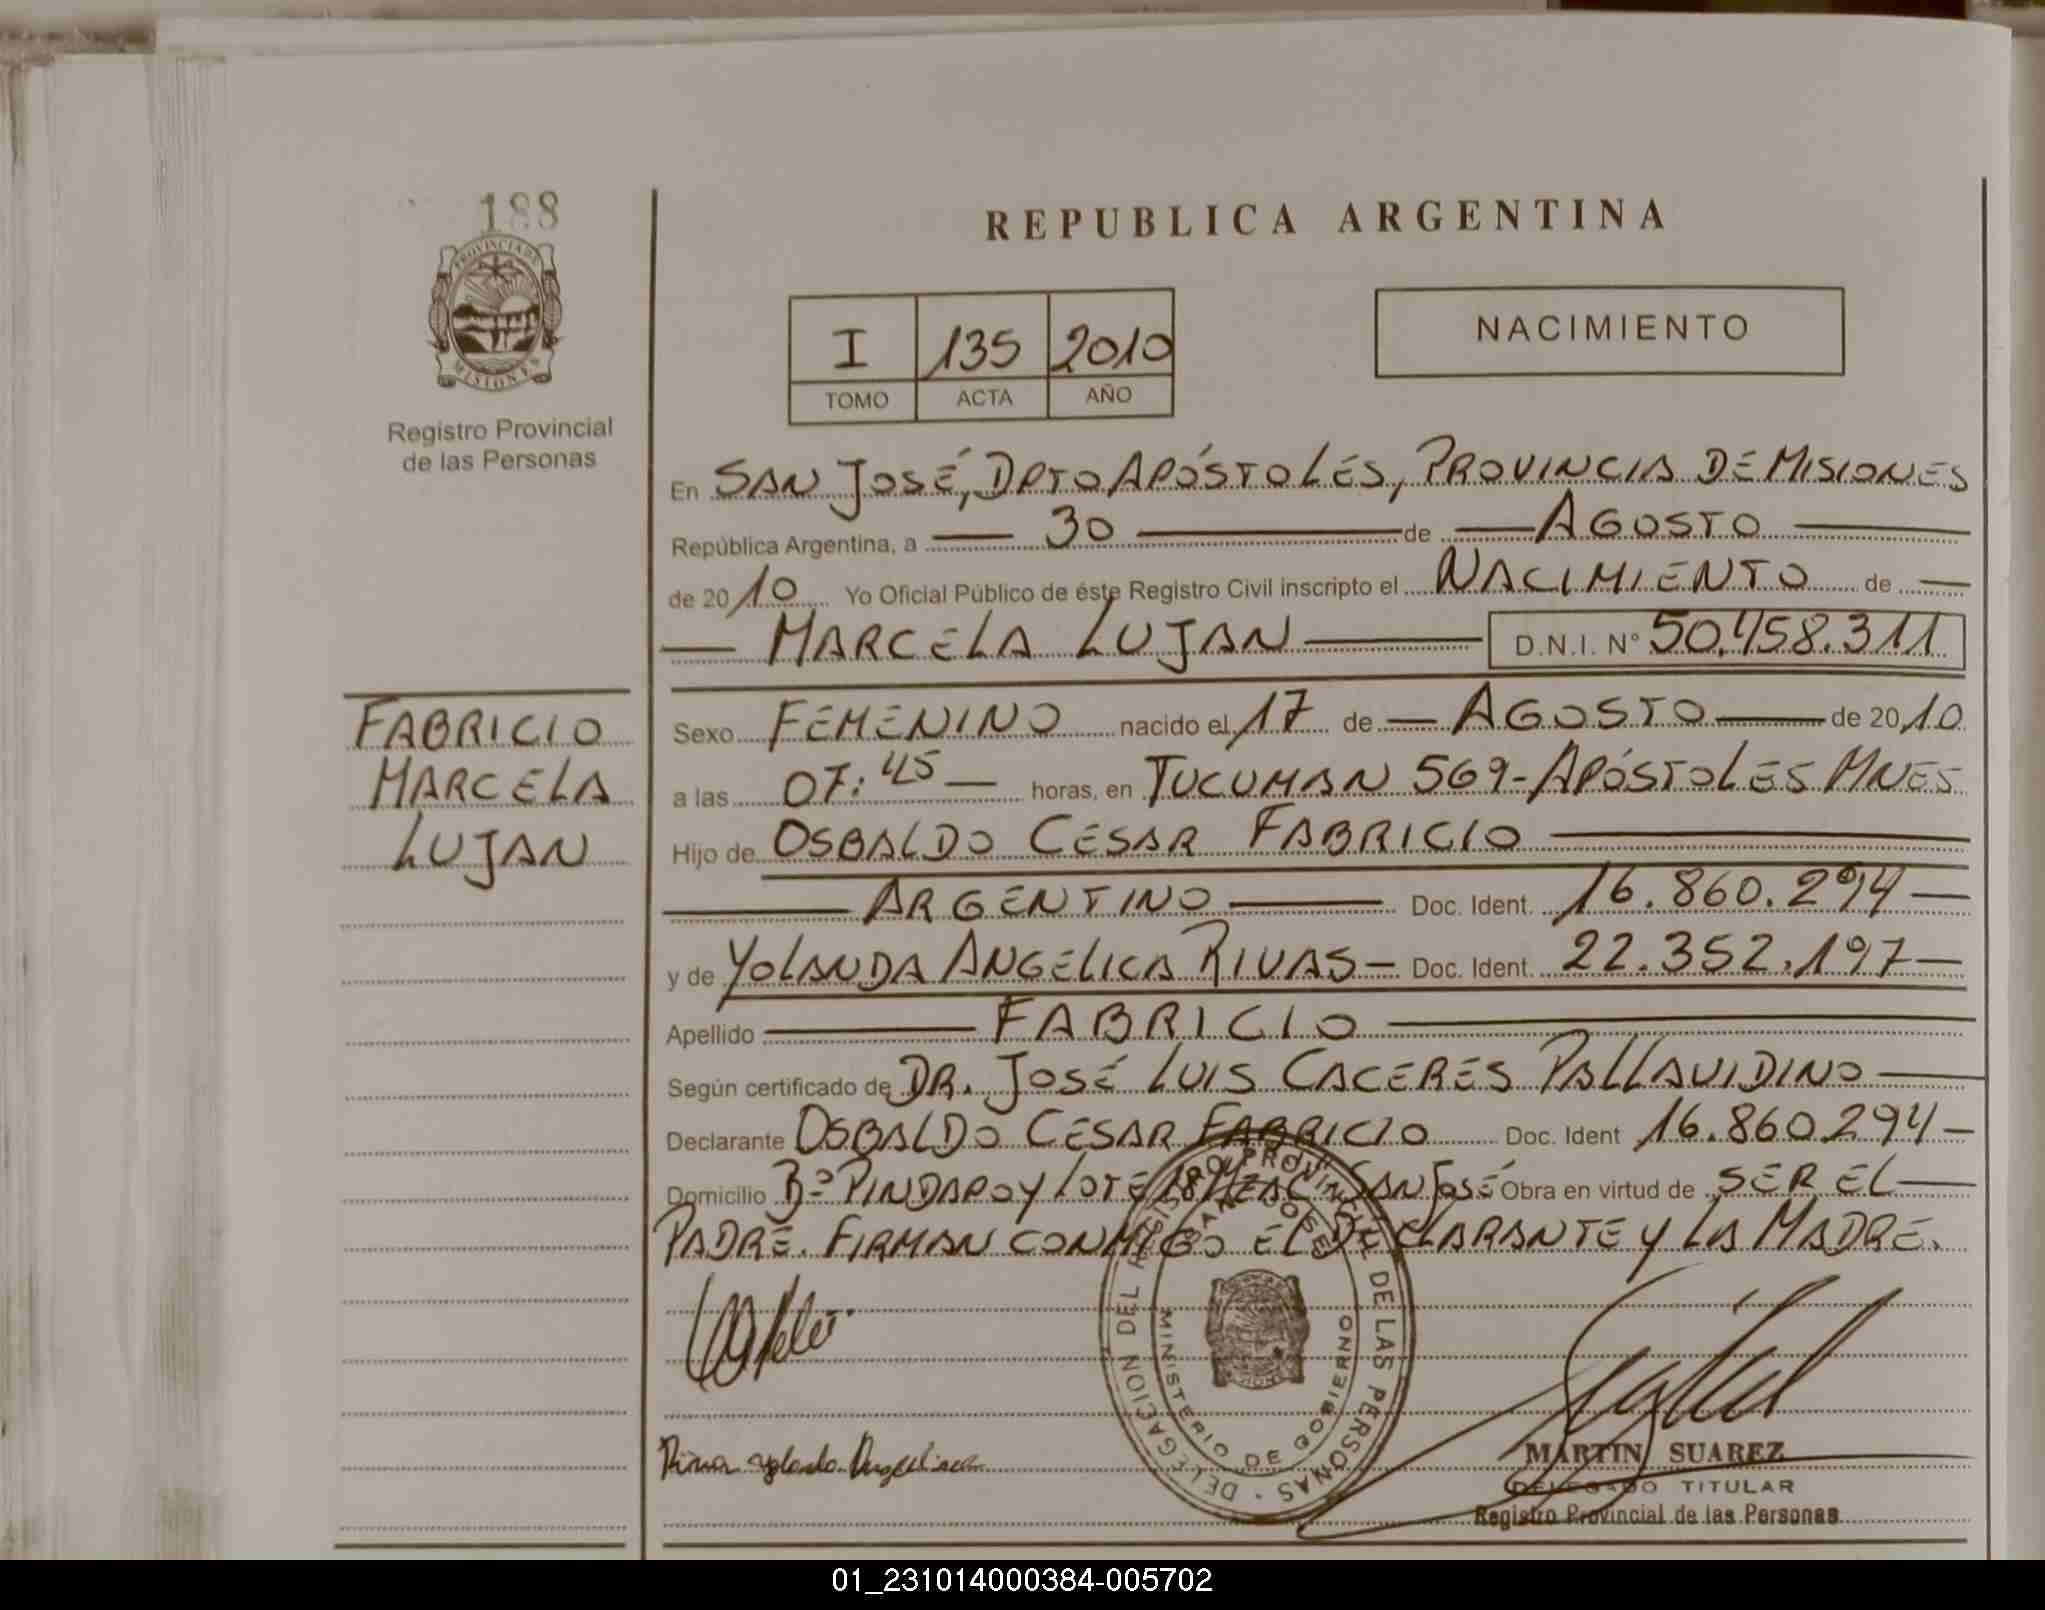 188
PROVINCIA DE
MISIONES
Registro Provincial
de las Personas
REPUBLICA ARGENTINA
I 135 2010
TOMO ACTA AÑO
NACIMIENTO
En SAN JOSÉ, DPTO APÓSTOLES, PROVINCIA DE MISIONES
República Argentina, a 30 de AGOSTO
de 2010 Yo Oficial Público de éste Registro Civil inscripto el NACIMIENTO de
MARCELA LUJAN D.N.I. Nº 50.458.311
FABRICIO
MARCELA
LUJAN
Sexo FEMENINO nacido el 17 de AGOSTO de 2010
a las 07:45 horas, en TUCUMAN 569-APÓSTOLES MNES
Hijo de OSBALDO CESAR FABRICIO
ARGENTINO Doc. Ident. 16.860.294
y de YOLANDA ANGELICA RIVAS Doc. Ident. 22.352.197
Apellido FABRICIO
Según certificado de DR. JOSÉ LUIS CACERES PALLAVIDINO
Declarante OSBALDO CESAR FABRICIO Doc. Ident 16.860.294
Domicilio Bº PINDAPOY LOTE SAN JOSÉ Obra en virtud de SER EL
PADRE. FIRMAN CONMIGO EL DECLARANTE Y LA MADRE.
DELEGACION DEL REGISTRO PROVINCIAL DE LAS PERSONAS
SAN JOSE
MINISTERIO DE GOBIERNO
MARTIN SUAREZ
DELEGADO TITULAR
Registro Provincial de las Personas
01_231014000384-005702